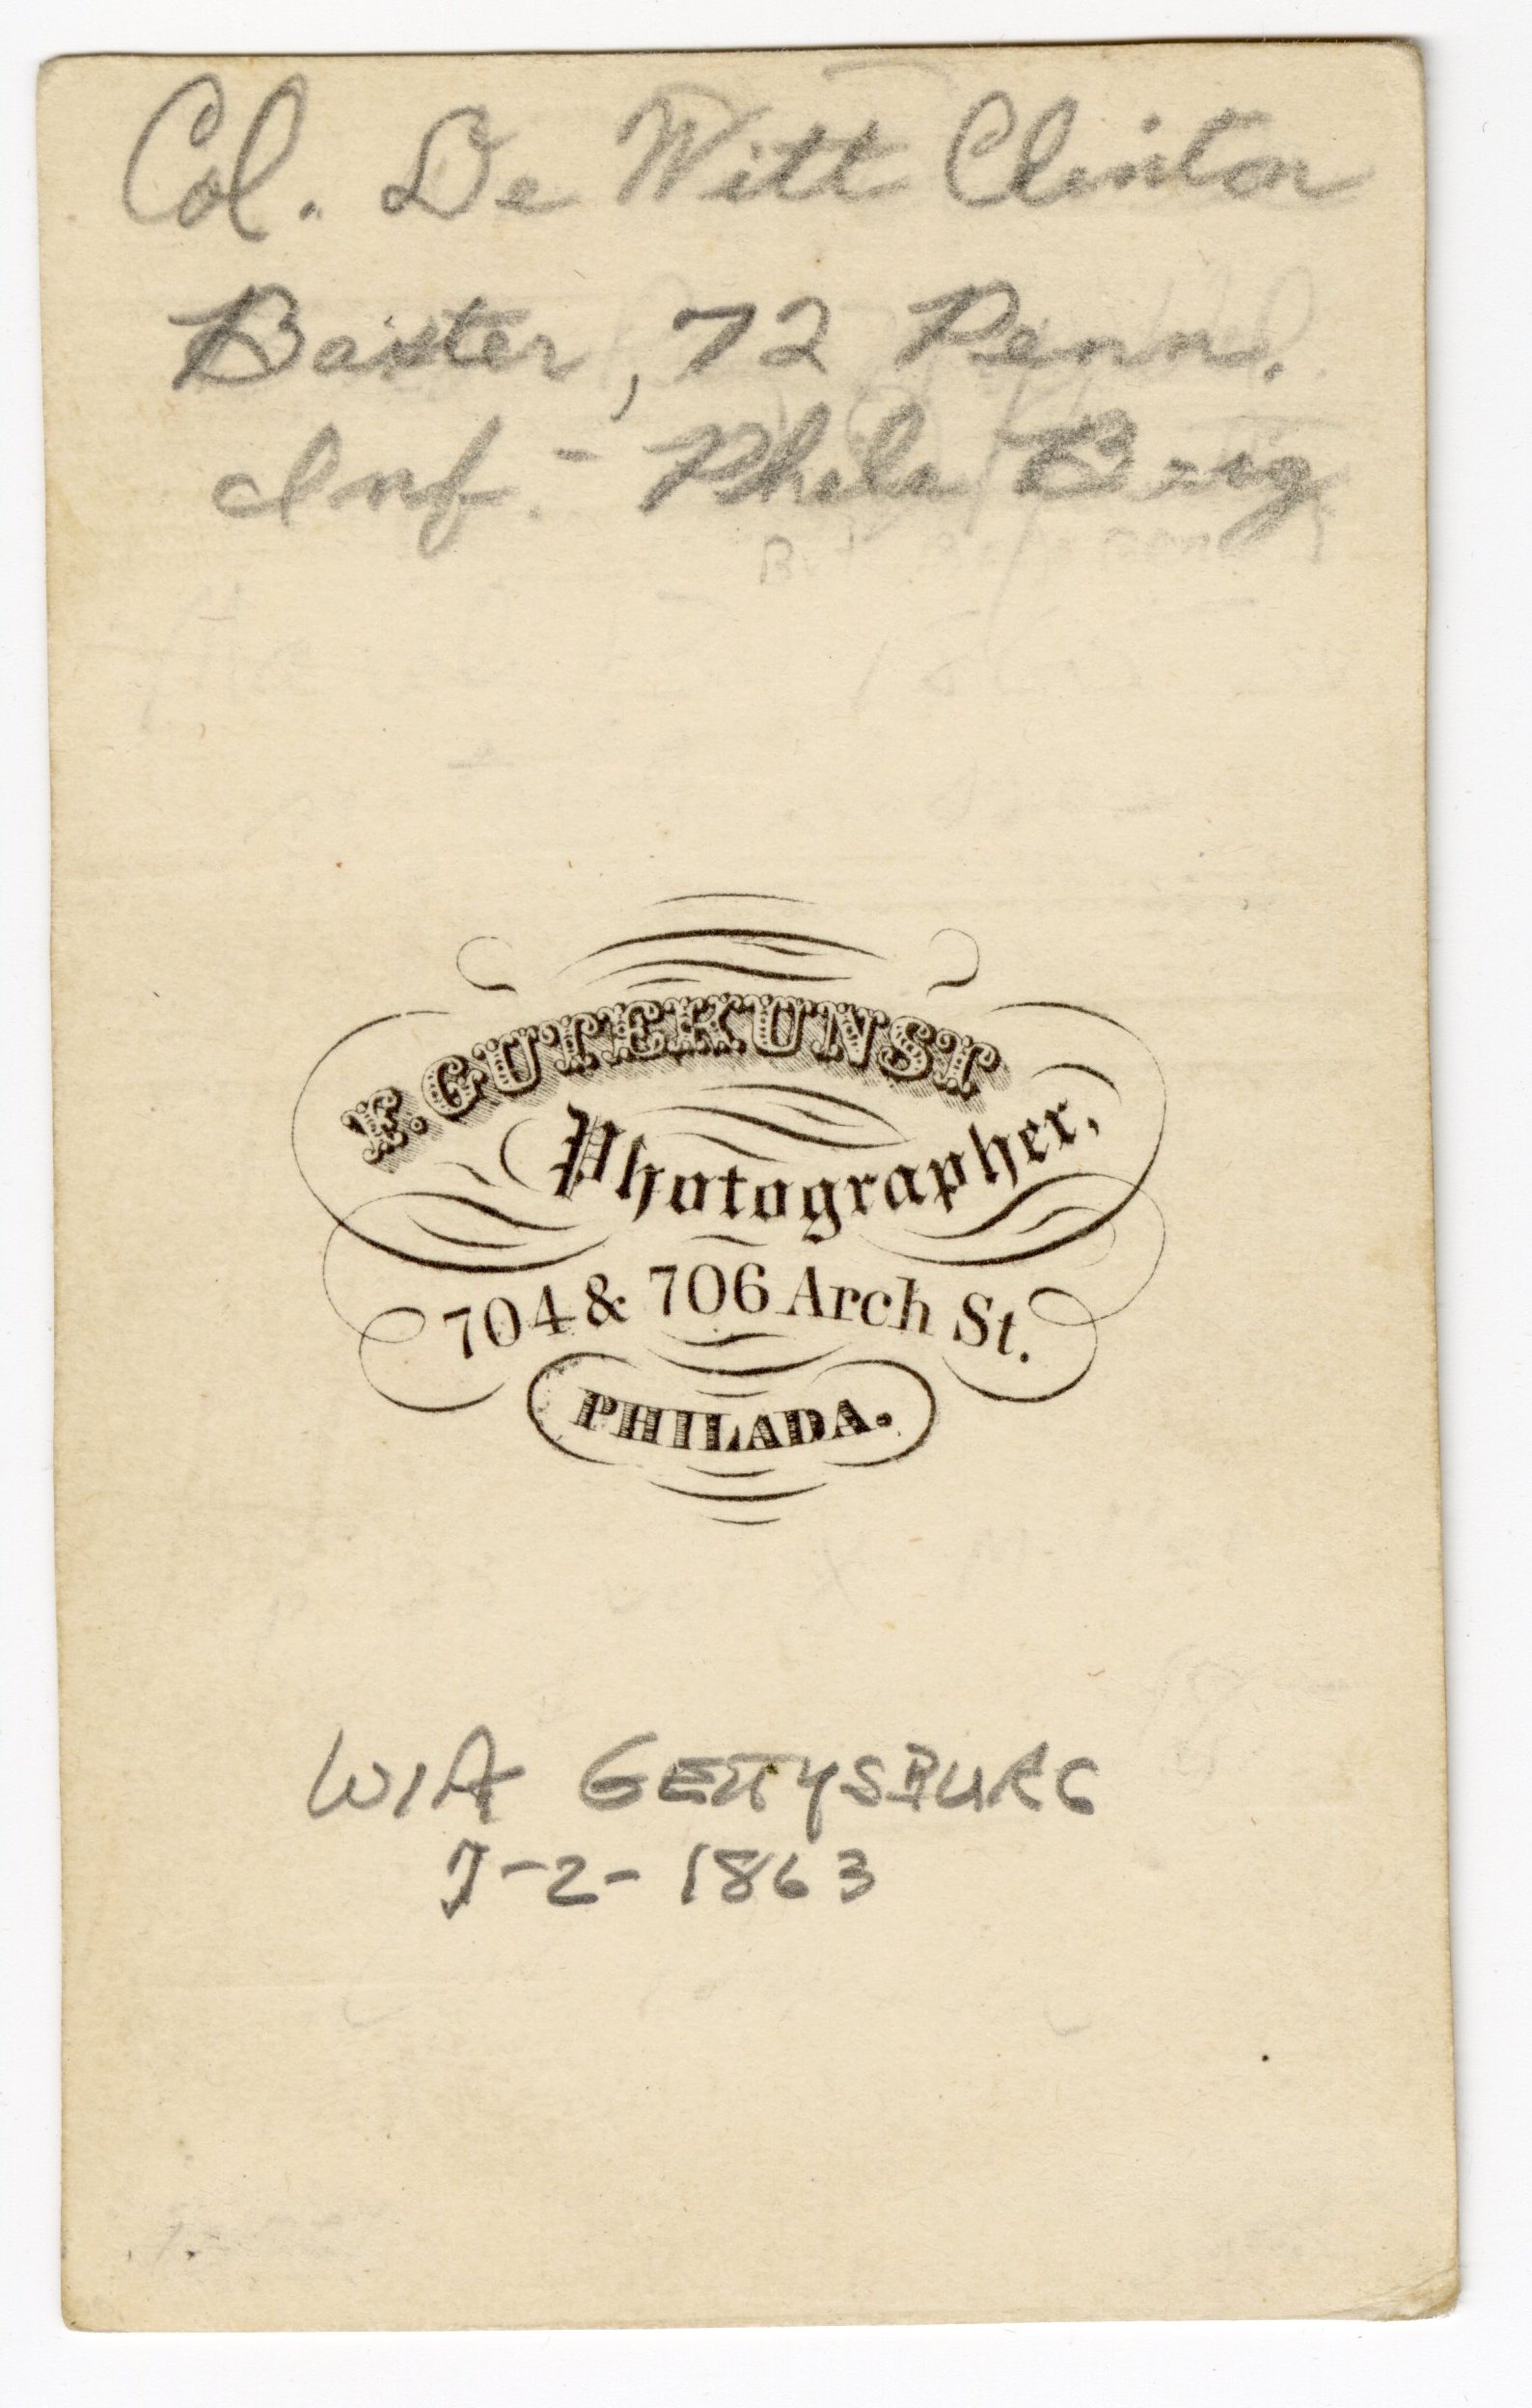 Col. De Witt Clinton
Baxter, 72 Penn.
Inf. - Phila Brig
F. GUTEKUNST
Photographer,
704 & 706 Arch St.
PHILADA.
WIA GETTYSBURG
7-2-1863